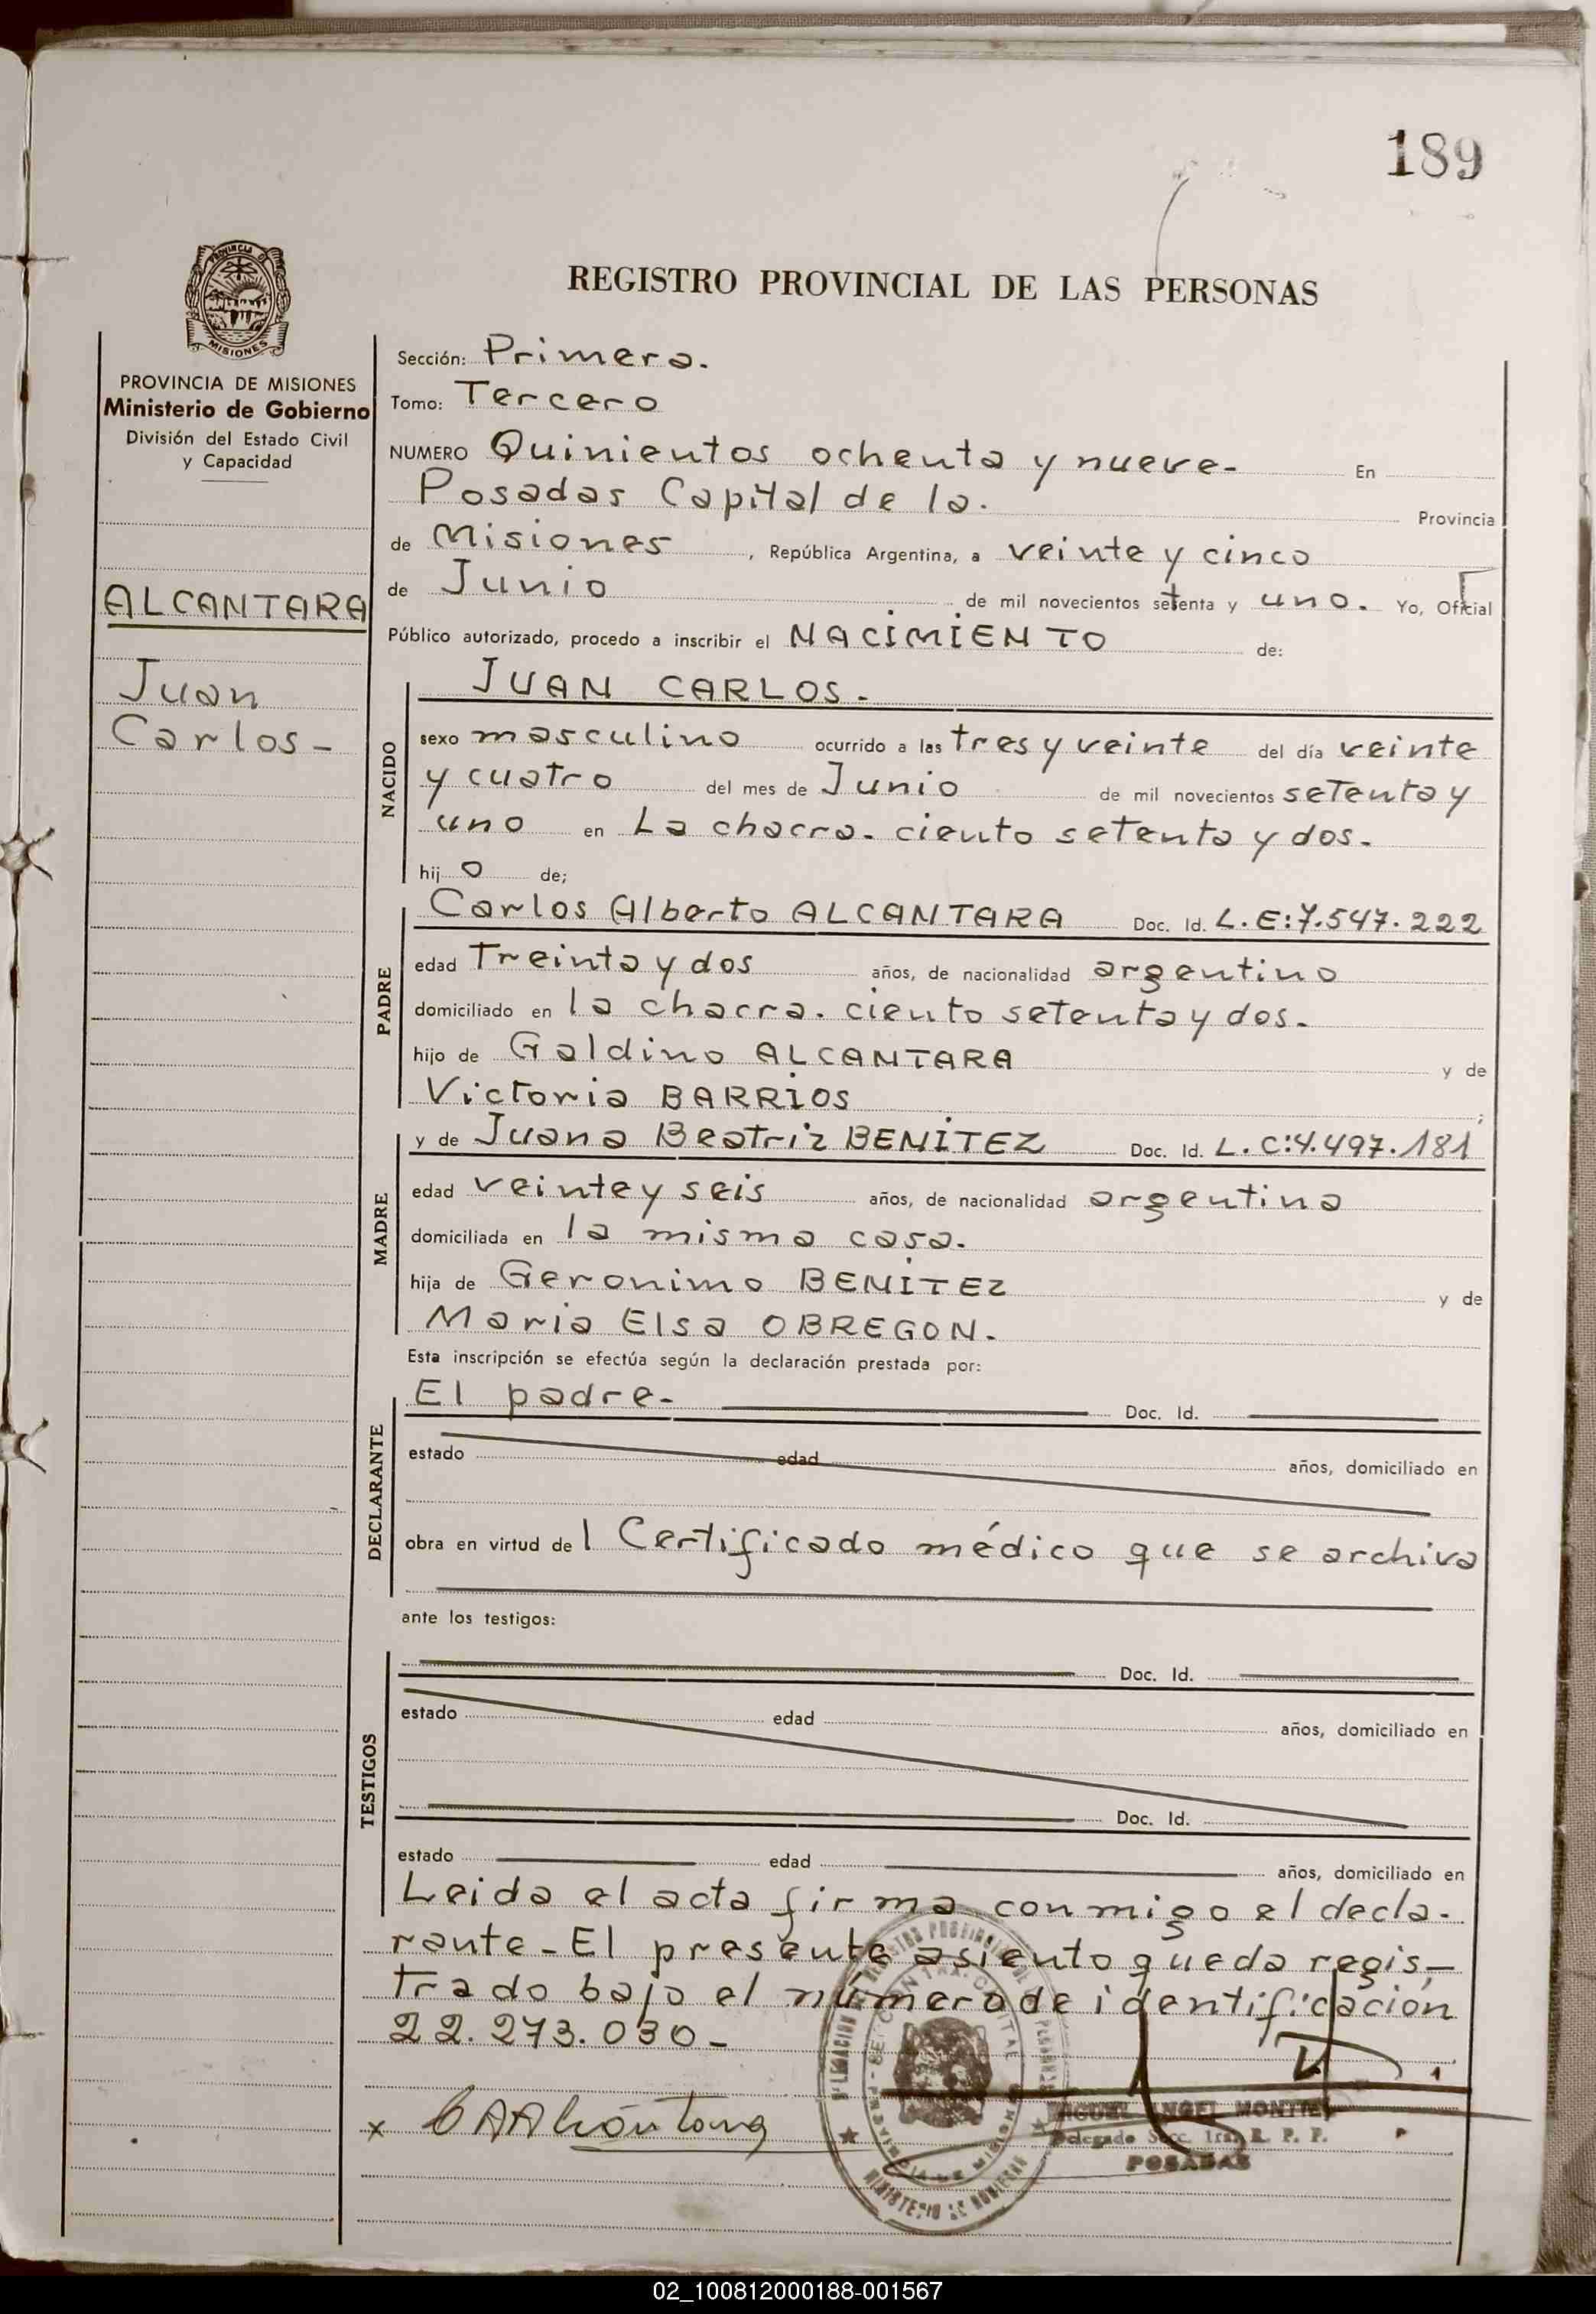 189
REGISTRO PROVINCIAL DE LAS PERSONAS
PROVINCIA DE
MISIONES
PROVINCIA DE MISIONES
Ministerio de Gobierno
División del Estado Civil
y Capacidad
ALCANTARA
Juan
Carlos-
Sección: Primera.
Tomo: Tercero
NUMERO Quinientos ochenta y nueve- En
Posadas Capital de la. Provincia
de Misiones, República Argentina, a veinte y cinco
de Junio de mil novecientos setenta y uno. Yo, Oficial
Público autorizado, procedo a inscribir el NACIMIENTO de:
JUAN CARLOS.
NACIDO
sexo masculino ocurrido a las tres y veinte del día veinte
y cuatro del mes de Junio de mil novecientos setenta y
uno en La chacra. ciento setenta y dos.
hijo de;
PADRE
Carlos Alberto ALCANTARA Doc. Id. L.E:7.547.222
edad Treinta y dos años, de nacionalidad argentino
domiciliado en la chacra. ciento setenta y dos.
hijo de Galdino ALCANTARA y de
Victoria BARRIOS;
MADRE
y de Juana Beatriz BENITEZ Doc. Id. L.C:4.497.181
edad veinte y seis años, de nacionalidad argentina
domiciliada en la misma casa.
hija de Geronimo BENITEZ y de
Maria Elsa OBREGON.
Esta inscripción se efectúa según la declaración prestada por:
DECLARANTE
El padre- Doc. Id.
estado edad años, domiciliado en
obra en virtud del Certificado médico que se archiva
ante los testigos:
TESTIGOS
Doc. Id.
estado edad años, domiciliado en
Doc. Id.
estado edad años, domiciliado en
Leida el acta firma conmigo el decla-
rante-El presente asiento queda regis-
trado bajo el número de identificación
22.273.030-
x CAAlcántara
MIGUEL ANGEL MONTIEL
Delegado Secc. 1ra. R. P. P.
POSADAS
MINISTERIO DE GOBIERNO
02_100812000188-001567